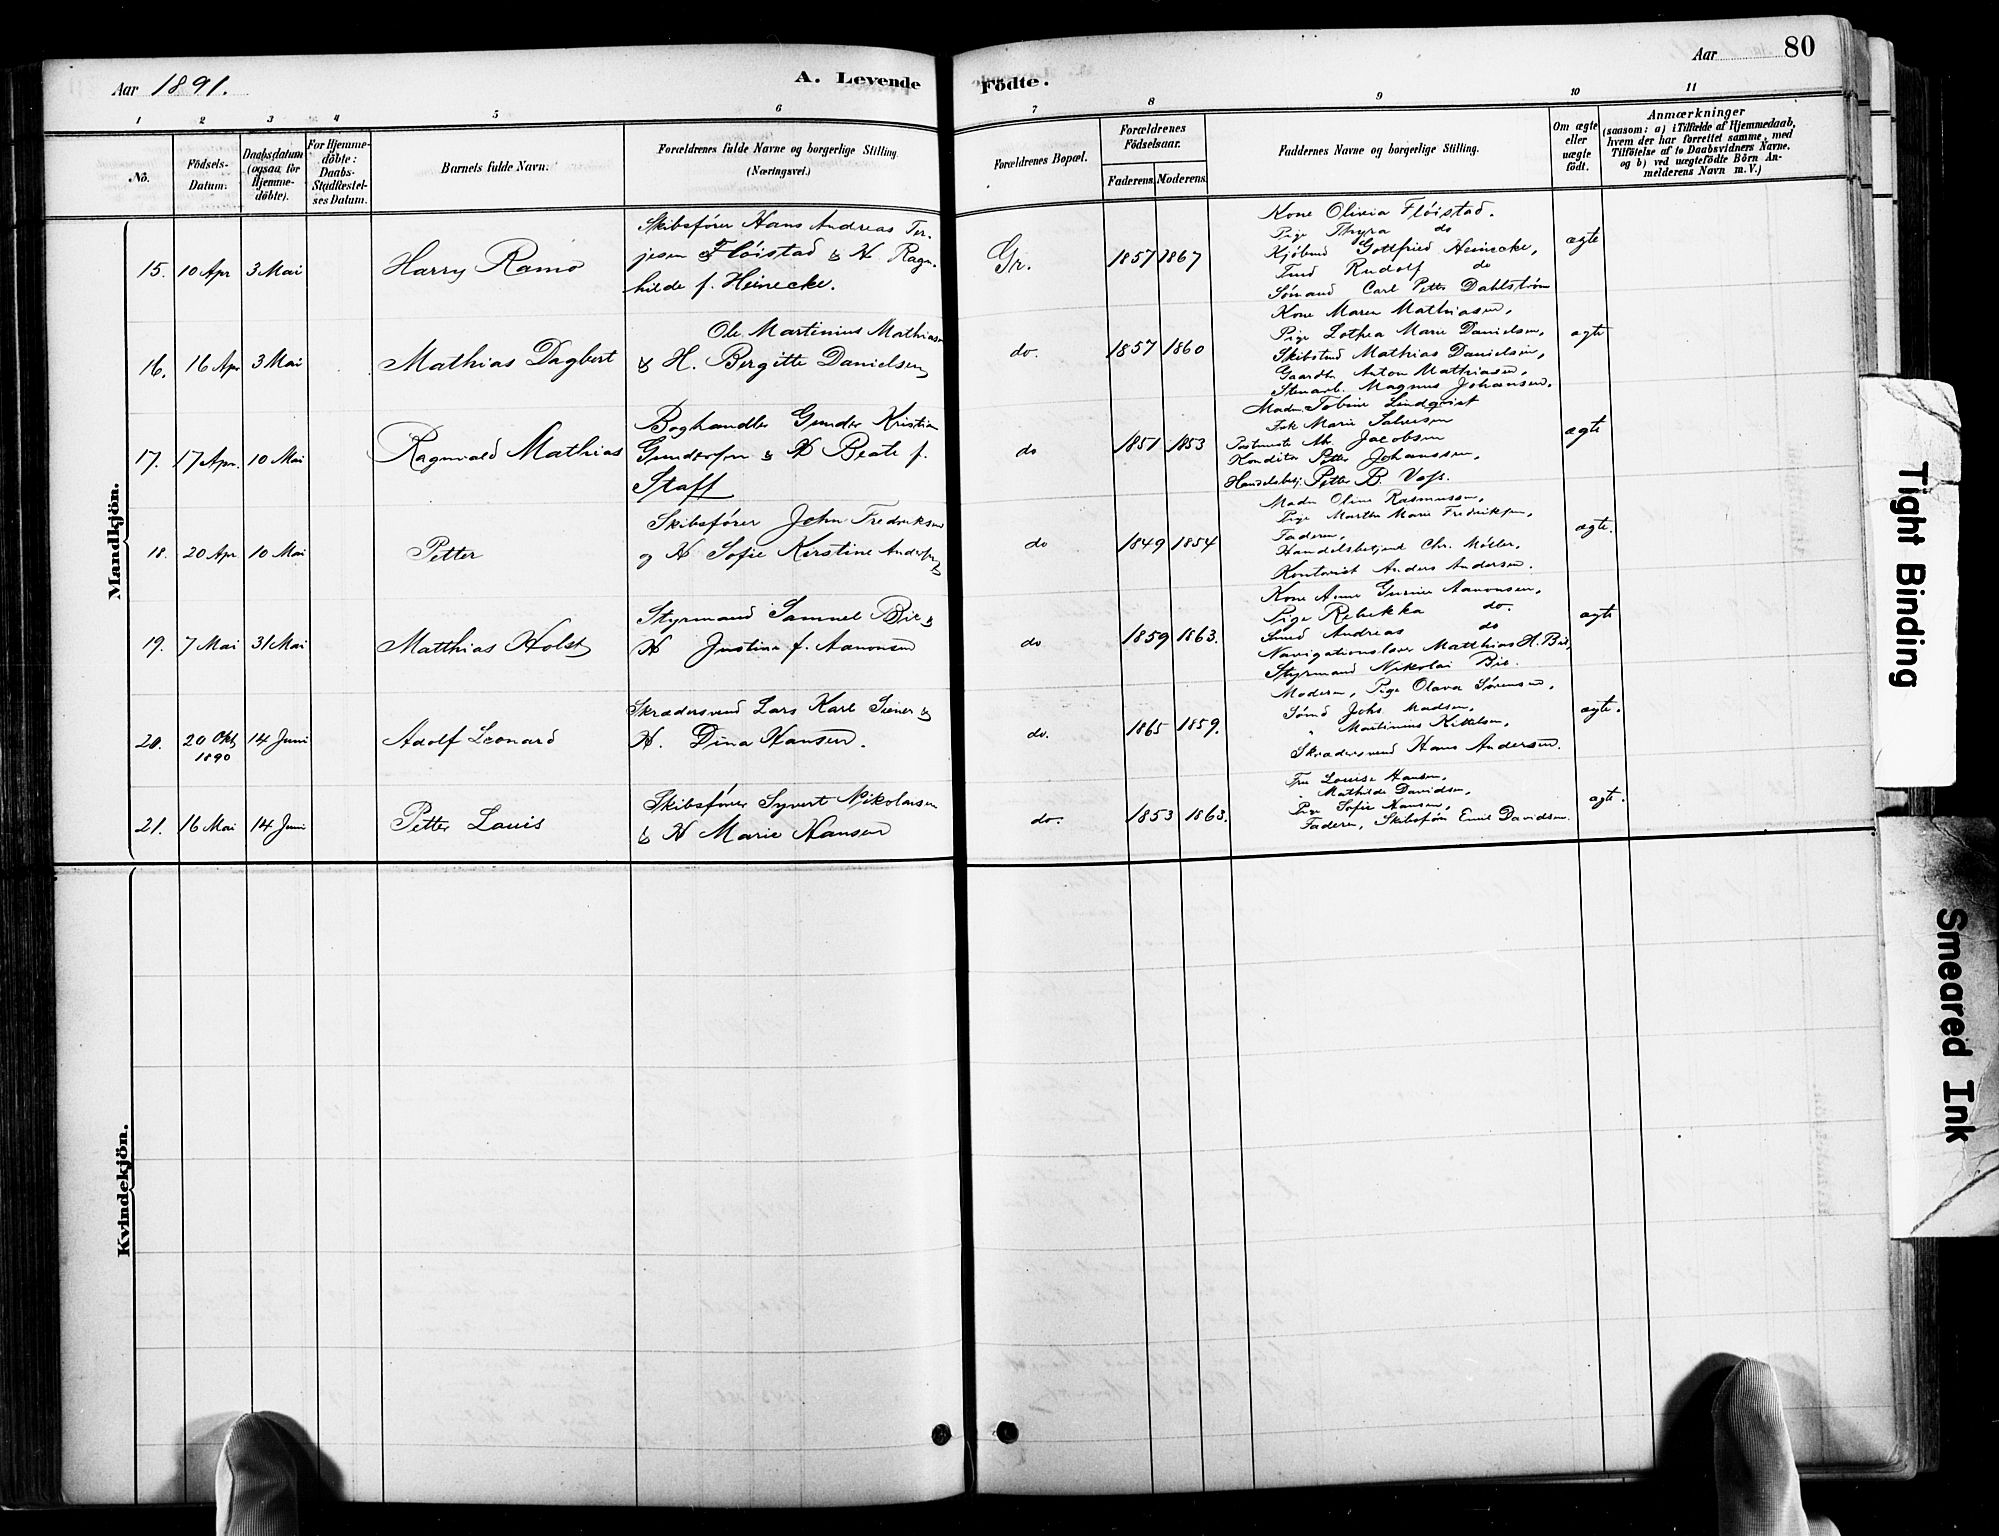 Aar 1891.
A. Levende
Födte.
Aar
80
1
2
3
4
5
6
7
8
9
10
11
No.
Födsels-
Datum.
Daabsdatum
(ogsaa for
Hjemme-
döbte).
For Hjemme-
döbte:
Daabs-
Stadfæstel-
ses Datum.
Barnets fulde Navn.
Forældrenes fulde Navne og borgerlige Stilling
(Næringsvei.)
Forældrenes Bopæl.
Forældrenes
Födselsaar.
Faderens.
Moderens.
Faddernes Navne og borgerlige Stilling.
Om ægte
eller
uægte
födt.
Anmærkninger
(saasom: a) i Tilfælde af Hjemmedaab,
hvem der har forrettet samme, med
Tilföielse af to Daabsvidners Navne,
og b) ved uægtefödte Börn An-
melderens Navn m. V.)
Mandkjön.
15. 10 Apr 3 Mai Harry Ramo
Skibsfører Hans Andreas Ter-
jesen Fløistad & H Ragn-
hilde f. Heinecke.
Gr. 1857 1867
Kone Olivia Fløistad.
Pige Thyra do
Kjøbmd Gottfried Heinecke,
Rudolf do
Carl Petter Dahlstrøm
ægte
16. 16 Apr 3 Mai Mathias Dagbert
Ole Martinius Mathias
& H. Bergitte Danielsen
do. 1857 1860
Kone Maren Mathiasen,
Pige Lothea Marie Danielsen,
Mathias Danielsen,
Anton Mathiasen,
Stenarb. Magnus Johansen.
ægte
17. 17 Apr. 10 Mai Ragnvald Mathias
Boghandler Gunder Kristian
Gundersen & H Beate f.
Staff
do 1851 1853
Madm. Tobine Lindqvist
Frk Marie Salvesen
Jacobsen
Konditor Petter Johanssen,
Handelsbetj. Petter B. Voss.
ægte
18. 20 Apr 10 Mai Petter
Skibsfører John Fredriksen
og H Sofie Kirstine Andersen
do 1849 1854
Madm Oline Rasmussen,
Pige Marthe Marie Fredriksen,
Faderen,
Handelsbetjent Chr. Møller,
Kontorist Anders Andersen.
ægte.
19. 7 Mai 31 Mai Matthias Holst
Styrmand Samuel Bie &
H Justina f. Aanonsen
do 1859 1863.
Kone Anne Gurine Aanonsen,
Pige Rebekka do.
Smed Andreas do
Navigationslærer Matthias H. Bie,
Styrmand Nikolai Bie.
ægte
20. 20 Okt 1890 14 Juni Adolf Leonard
Skrædersvend Lars Karl &
H. Dina Hansen.
do. 1865 1859.
Moderen, Pige Olava Sørensen,
Sømd Johs Madsen,
" Martinius Kittelsen,
Skrædersvend Hans Andersen.
ægte.
21. 16 Mai 14 Juni Petter Louis
Skibsfører Syvert Nikolaisen
& H Marie Hansen
do. 1853 1863.
Fru Louise Hansen,
" Mathilde Davidsen,
Pige Sofie Hansen,
Faderen, Skibsfør Emil Davidsen.
ægte.
Kvindekjön.
Tight Binding
Smeared Ink